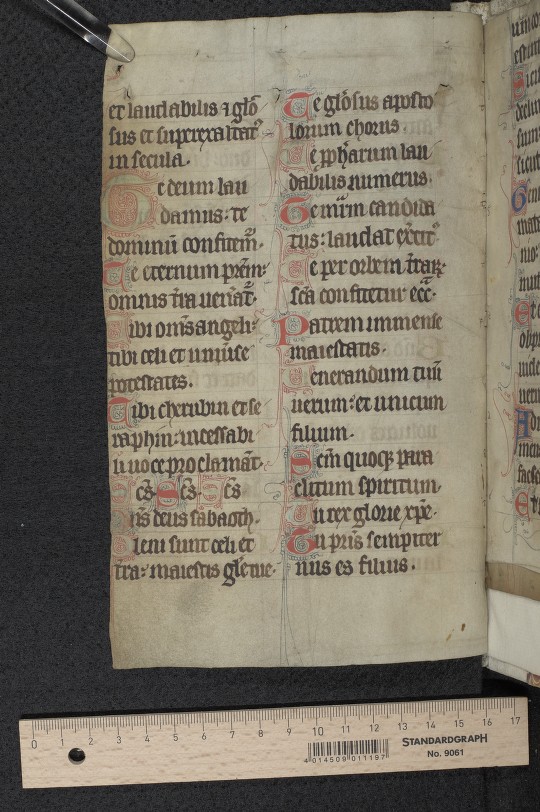 et laudabilis ⁊ glõ
sus et superexaltat᷑
in secula.
Te deum lau
damus: te
dominũ confitem᷑.
Te eternum prẽm:
omnis t̃ra uen̾at᷑.
Tibi om̃s angeli:
tibi celi et uniũse
potestates.
Tibi cherubin et se
raphin: incessabi
li uoce proclamãt.
Scs̃ Scs̃ Scs̃
Dñs deus sabaoth.
Pleni sunt celi et
t̃ra: maiestis gl̃e tue.
Te glõsus aposto
lorum chorus.
Te ꝓph̃arum lau
dabilis numerus.
Te mr̃m candida
tus: laudat ex̃cit᷑.
Te per orbem t̃raꝝ:
sc̃a confitetur ecc̃.
Patrem immense
maiestatis.
Uenerandum tuũ
uerum: et unicum
filium.
Scm̃ quoqꝫ para
clitum spiritum.
Tu rex glorie xp̃e.
Tu pr̃is sempiter
nus es filius.
0 1 2 3 4 5 6 7 8 9 10 11 12 13 14 15 16 17
4 014509 011197
STANDARDGRAPH
No. 9061